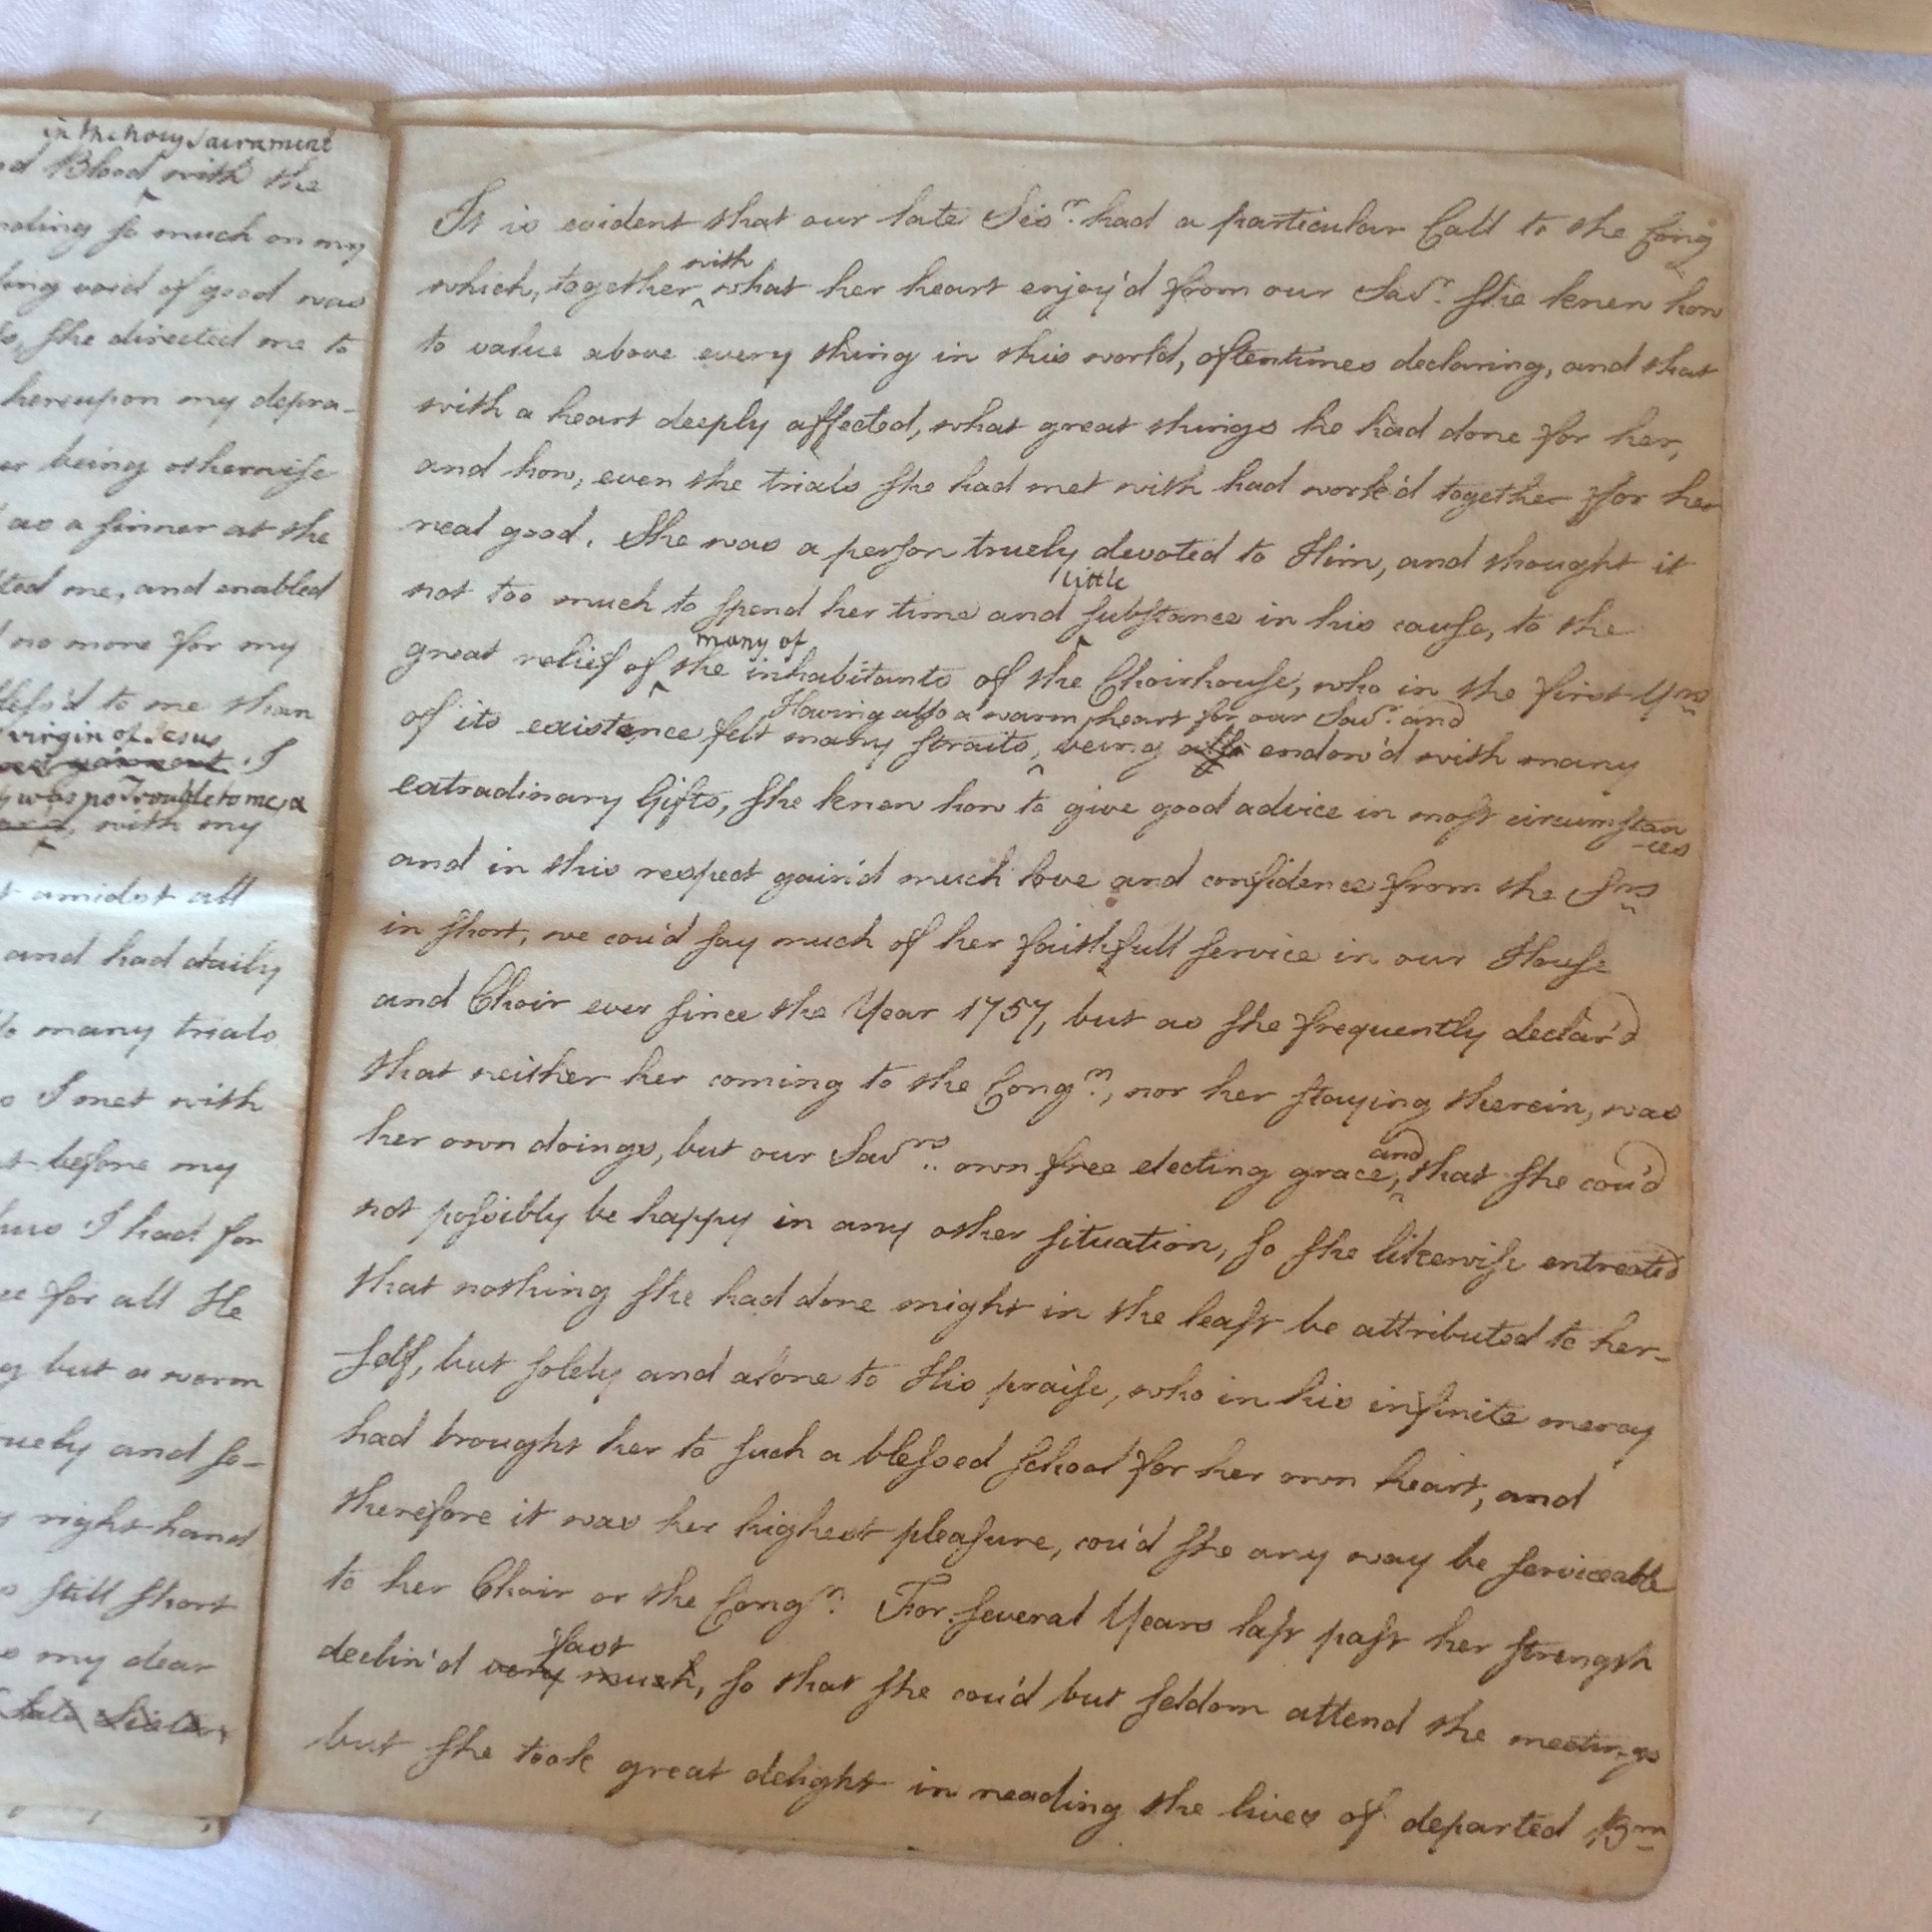 in the holy Sacrament
Blood with the
so much on my
void of good was
she directed me to
hereupon my depra-
being otherwise
as a sinner at the
me, and enabled
no more for my
to me than
virgin of Jesus
I
was no Trouble to me, a
with my
amidst all
and had daily
many trials
I met with
before my
I had for
for all He
but a warm
and so-
right hand
still short
my dear
late Sister
It is evident that our late Sisr. had a particular Call to the Cong
with
which, together what her heart enjoy'd from our Savr. she knew how
to value above every thing in this world, oftentimes declaring, and that
with a heart deeply affected, what great things he had done for her,
and how, even the trials she had met with had work'd together for her
real good. She was a person truely devoted to Him, and thought it
little
not too much to spend her time and substance in his cause, to the
many of
great relief of the inhabitants of the Choirhouse, who in the first Yrs
Having also a warm heart for our Savr. and
of its existence felt many straits, being also endow'd with many
extradinary Gifts, she knew how to give good advice in most circumstan
-ces
and in this respect gain'd much love and confidence from the Srs
in short, we cou'd say much of her faithfull service in our House
and Choir ever since the Year 1757, but as she frequently declar'd
that neither her coming to the Congn., nor her staying therein, was
and
her own doings, but our Savrs. own free electing grace, that she cou'd
not possibly be happy in any other situation, so she likewise entreated
that nothing she had done might in the least be attributed to her-
self, but solely and alone to His praise, who in his infinite mercy
had brought her to such a blessed school for her own heart, and
therefore it was her highest pleasure, cou'd she any way be serviceable
to her Choir or the Congn. For several Years last past her strength
fast
declin'd very much, so that she cou'd but seldom attend the meetings
but she took great delight in reading the lives of departed Brn